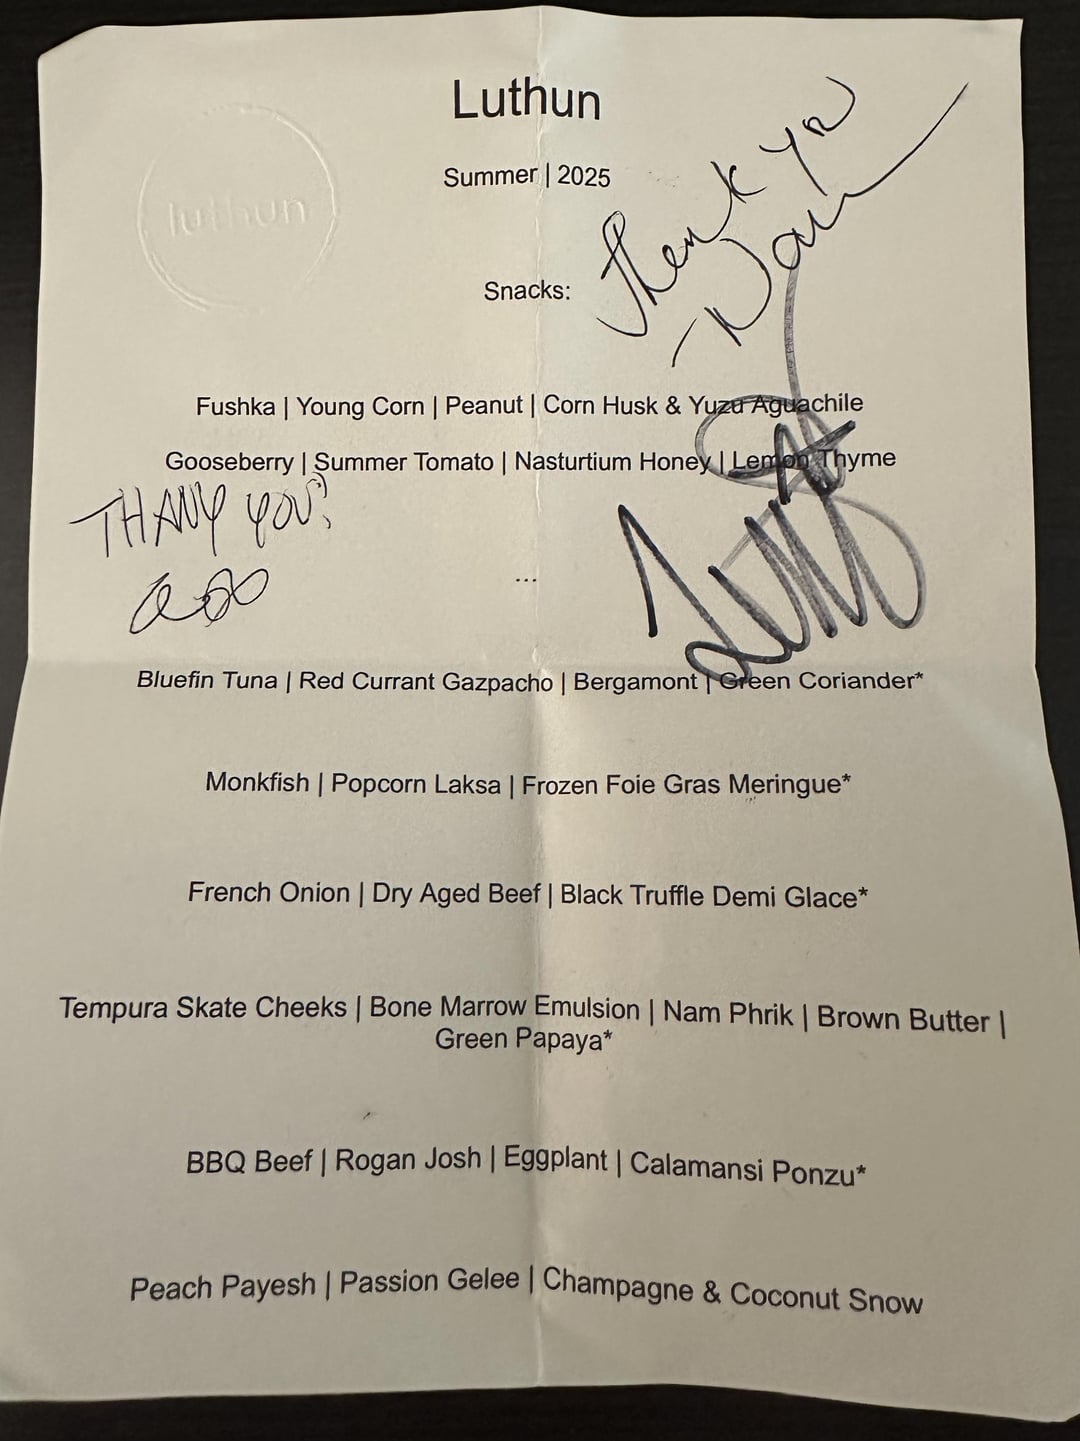 Luthun
Summer | 2025
luthun
Thank you
Snacks:
Fushka | Young Corn | Peanut | Corn Husk & Yuzu Aguachile
Gooseberry | Summer Tomato | Nasturtium Honey | Lemon Thyme
THANK YOU!
...
Bluefin Tuna | Red Currant Gazpacho | Bergamont | Green Coriander*
Monkfish | Popcorn Laksa | Frozen Foie Gras Meringue*
French Onion | Dry Aged Beef | Black Truffle Demi Glace*
Tempura Skate Cheeks | Bone Marrow Emulsion | Nam Phrik | Brown Butter |
Green Papaya*
BBQ Beef | Rogan Josh | Eggplant | Calamansi Ponzu*
Peach Payesh | Passion Gelee | Champagne & Coconut Snow